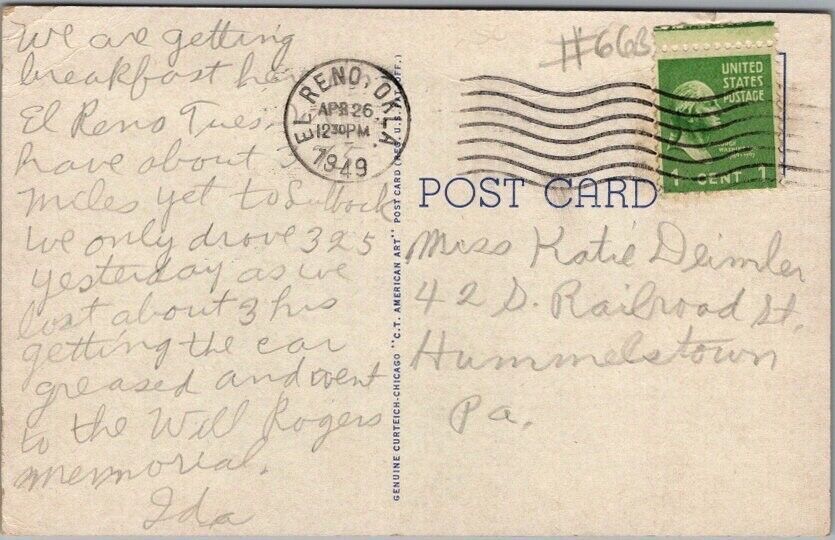 We are getting
breakfast
El Reno Tues.
have about 3
miles yet to Lubbock
We only drove 325
yesterday as we
lost about 3 hrs
getting the car
greased and went
to the Will Rogers
memorial.
Ida
EL RENO, OKLA.
APR 26
12 30 PM
1949
#66B
UNITED
STATES
POSTAGE
1 CENT 1
POST CARD
Miss Katie Deimler
42 S. Railroad St.
Hummelstown
Pa.
GENUINE CURTEICH-CHICAGO "C.T. AMERICAN ART" POST CARD (REG. U.S. PAT. OFF.)